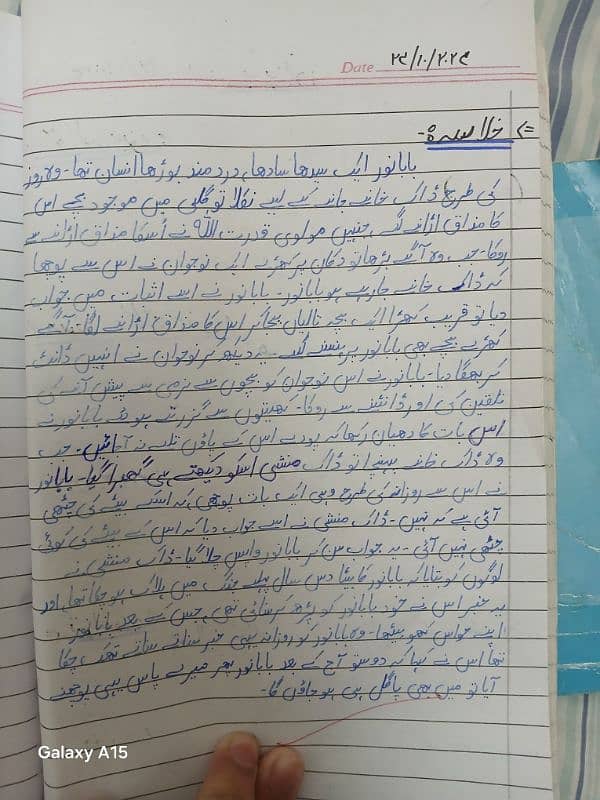 Date ۲۴/۱۰/۲۰۲۴
=> خلاصہ:-
بابا نور ایک سیدھا سادھا، درد مند بوڑھا انسان تھا۔ وہ روز
کی طرح ڈاک خانے جانے کے لیے نکلا تو گلی میں موجود بچے اس
کا مذاق اڑانے لگے جنہیں مولوی قدرت اللہ نے اسکا مذاق اڑانے سے
روکا۔ جب وہ آگے بڑھا تو دکان پر کھڑے ایک نوجوان نے اس سے پوچھا
کہ ڈاک خانے جا رہے ہو بابا نور۔ بابا نور نے اسے اثبات میں جواب
دیا تو قریب کھڑا ایک بچہ تالیاں بجا کر اس کا مذاق اڑانے لگا۔
کھڑے بچے بھی بابا نور پر ہنسنے لگے۔ یہ دیکھ کر نوجوان نے انہیں ڈانٹ
کر بھگا دیا۔ بابا نور نے اس نوجوان کو بچوں سے نرمی سے پیش آنے کی
تلقین کی اور ڈانٹنے سے روکا۔ کھیتوں سے گزرتے ہوئے بابا نور نے
اس بات کا دھیان رکھا کہ پودے اس کے پاؤں تلے نہ آ جائیں۔ جب
وہ ڈاک خانے پہنچا تو ڈاک منشی اسکو دیکھتے ہی گھبرا گیا۔ بابا نور
نے اس سے روزانہ کی طرح وہی ایک بات پوچھی کہ اسکے بیٹے کی چٹھی
آئی ہے کہ نہیں۔ ڈاک منشی نے اسے جواب دیا کہ اس کے بیٹے کی کوئی
چٹھی نہیں آئی۔ یہ جواب سن کر بابا نور واپس چلا گیا۔ ڈاک منشی نے
لوگوں کو بتایا کہ بابا نور کا بیٹا دس سال پہلے جنگ میں ہلاک ہو چکا تھا اور
یہ خبر اس نے خود بابا نور کو پڑھ کر سنائی تھی جس کے بعد بابا نور
اپنے حواس کھو بیٹھا۔ وہ بابا نور کو روزانہ یہی خبر سناتے سناتے تھک چکا
تھا اس نے کہا کہ دوستو آج کے بعد بابا نور پھر میرے پاس یہی پوچھنے
آیا تو میں بھی پاگل ہی ہو جاؤں گا۔
Galaxy A15